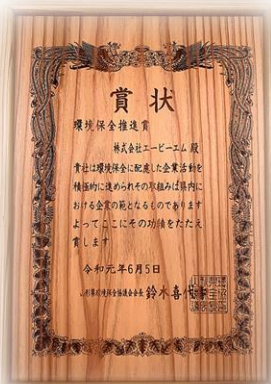 賞状
環境保全推進賞
株式会社エービーエム 殿
貴社は環境保全に配慮した企業活動を
積極的に進められその取組みは県内に
おける企業の範となるものであります
よってここにその功績をたたえ
賞します
令和元年6月5日
山形県環境保全協議会会長 鈴木喜